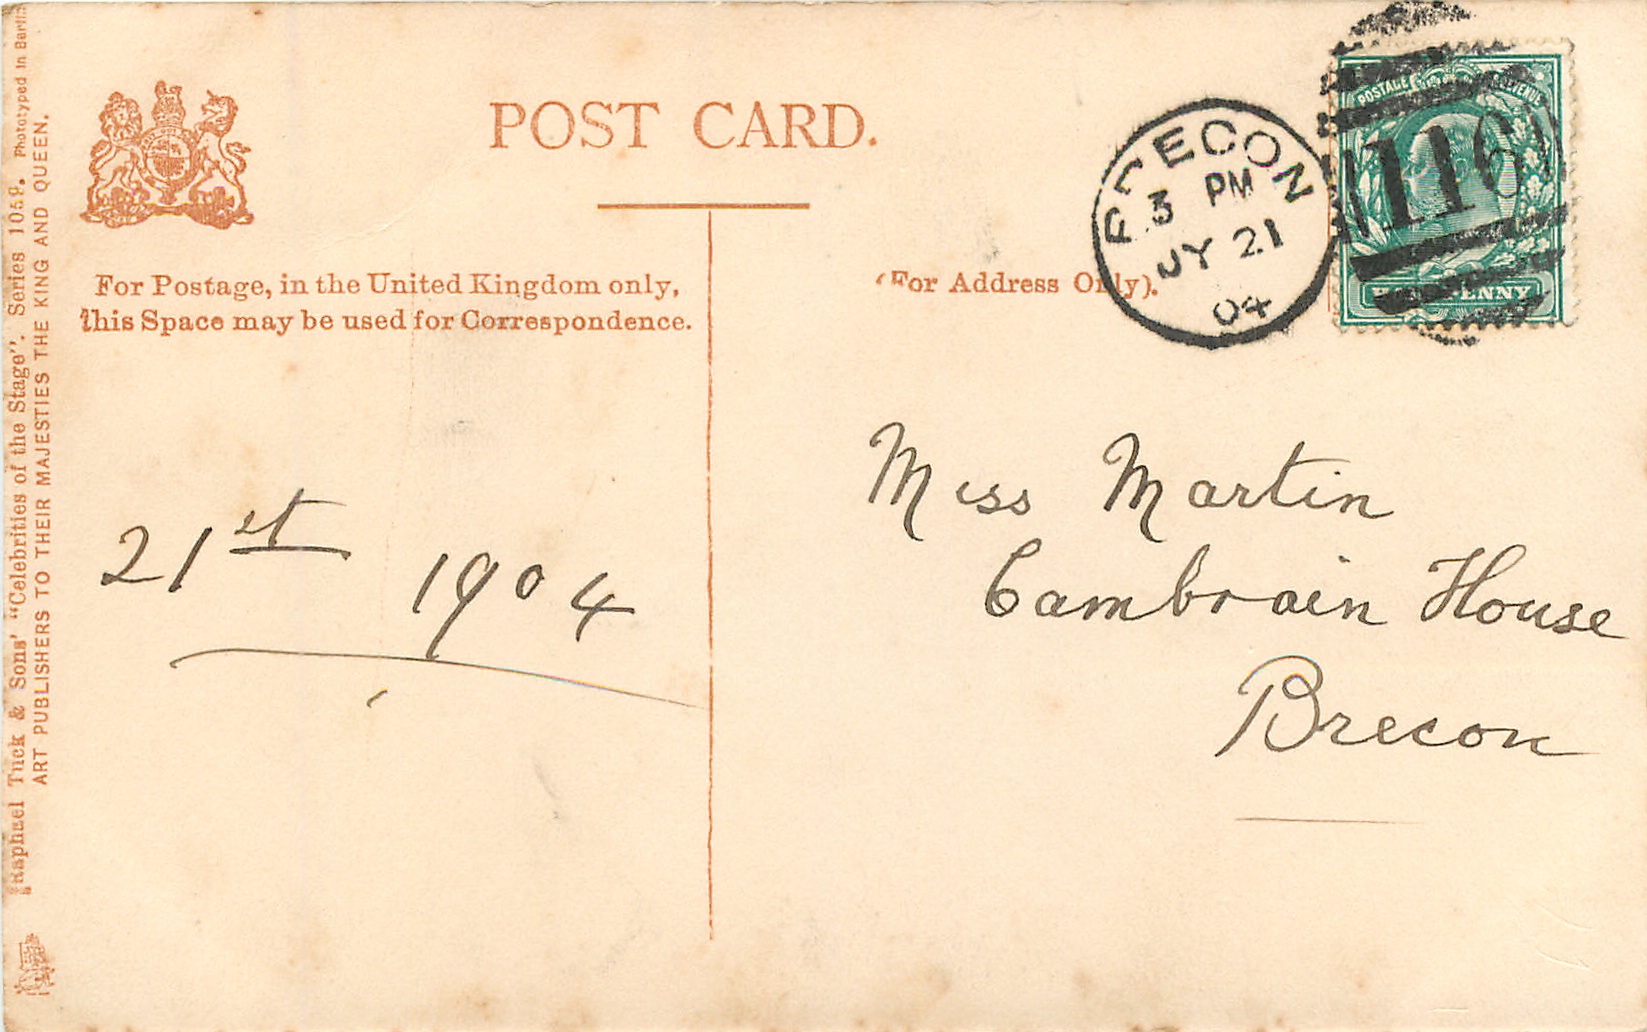 POST CARD.
For Postage, in the United Kingdom only,
this Space may be used for Correspondence.
(For Address Only).
BRECON
3 PM
JY 21
04
116
POSTAGE REVENUE
HALFPENNY
21st 1904
Miss Martin
Cambrain House
Brecon
Raphael Tuck & Sons' "Celebrities of the Stage". Series 1059. Phototyped in Berlin
ART PUBLISHERS TO THEIR MAJESTIES THE KING AND QUEEN.